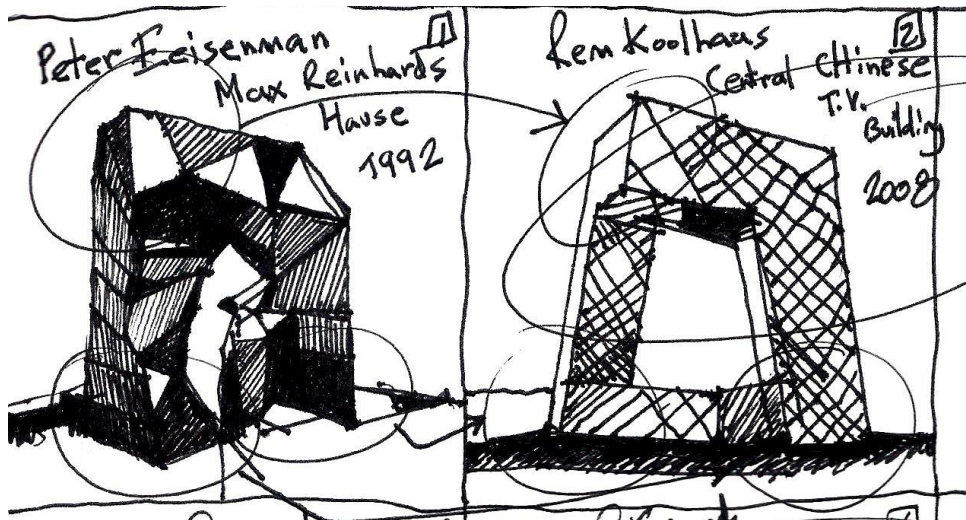 Peter Eeisenman
Max Reinhards
Hause
1992
1
Rem Koolhaus
Central CHinese
T.V.
Building
2008
2